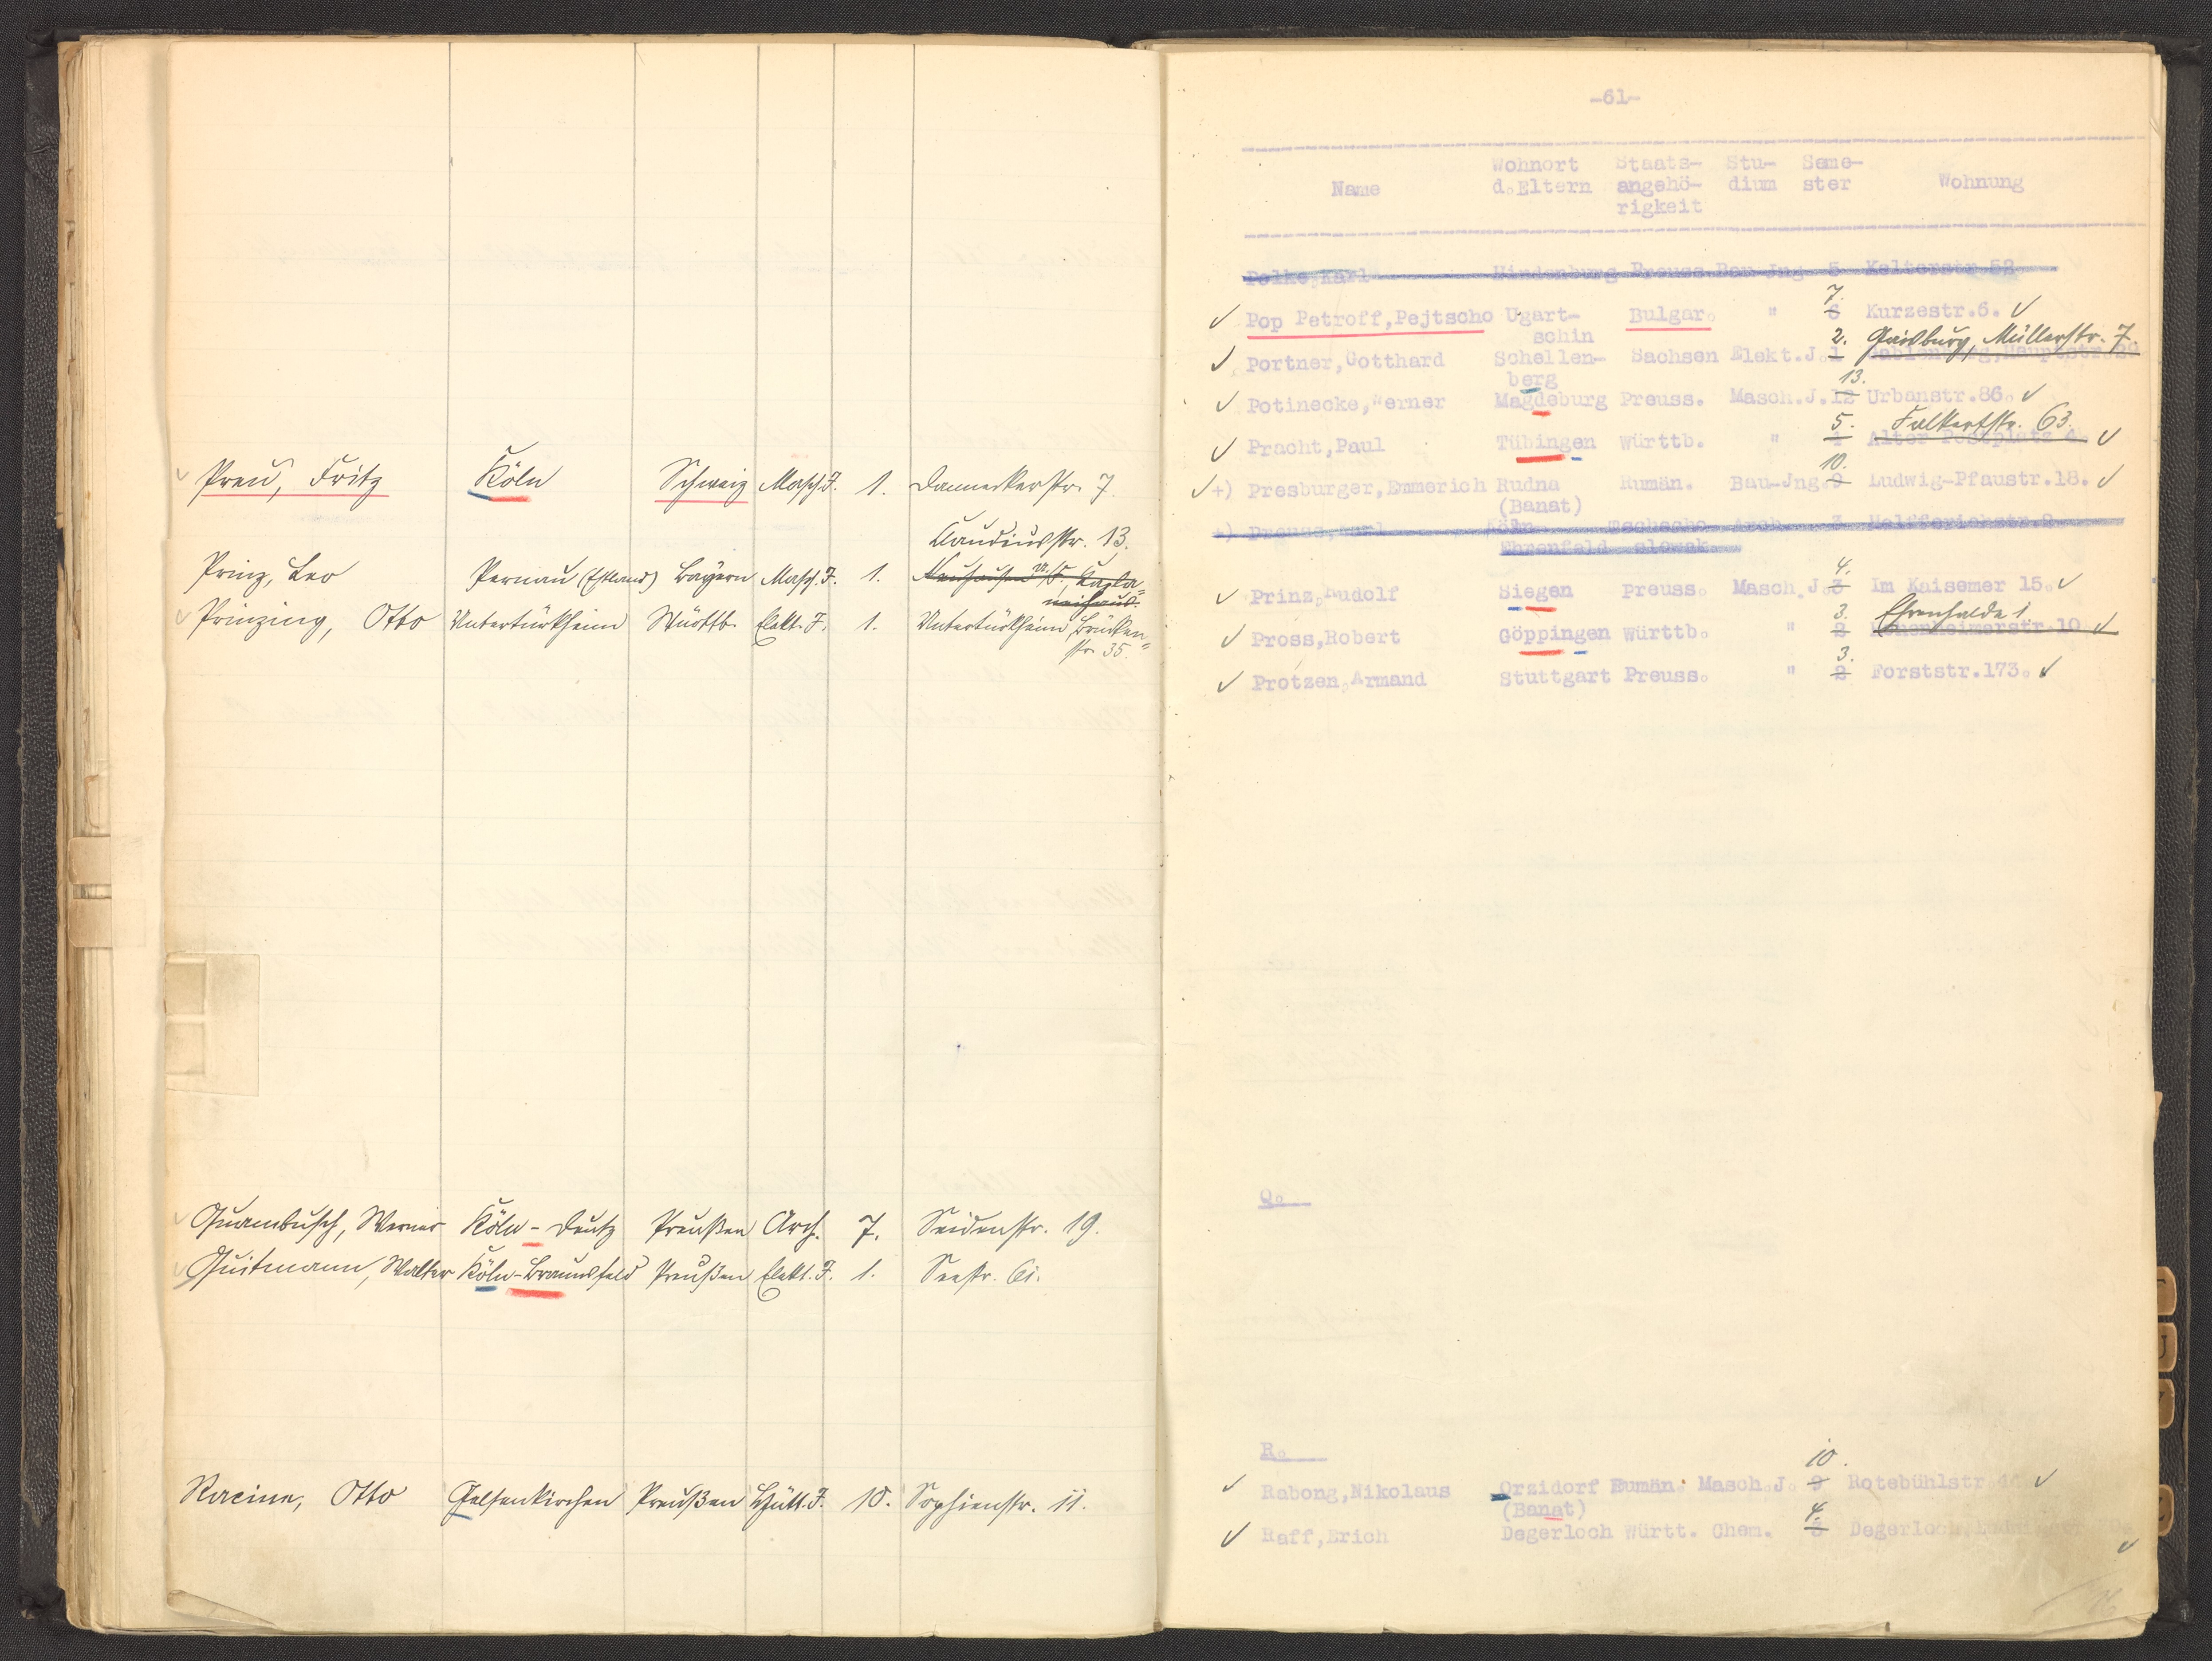 Preu, Fritz Köln Schweiz Masch.J. 1. Danneckerstr. 7
Claudiusstr. 13.
Prinz, Leo Pernau (Estland) Bayern Masch.J. 1.
Prinzing, Otto Untertürkheim Württb. Elekt.J. 1. Untertürkheim, Brücken-
str. 35.
Quambusch, Werner Köln-Deutz Preußen Arch. 7. Seidenstr. 19.
Quitmann, Walter Köln-Braunsfeld Preußen Elekt.J. 1. Seestr. 61.
Racine, Otto Gelsenkirchen Preußen Hütt.J. 10. Sophienstr. 11.
-61-
Wohnort Staats- Stu- Seme-
Name d.Eltern angehö- dium ster Wohnung
rigkeit
Polke, Karl Hindenburg Preuss. Bau-Jng. 5 Kelterstr.52
7.
Pop Petroff, Pejtscho Ugart- Bulgar. " 6 Kurzestr.6.
schin
2. Gaisburg, Müllerstr. 7.
Portner, Gotthard Schellen- Sachsen Elekt.J. 1
berg
13.
Potinecke, Werner Magdeburg Preuss. Masch.J. 12 Urbanstr.86.
5. Falkertstr. 63.
Pracht, Paul Tübingen Württb. " 4 Alter Postplatz 4.
10.
+) Presburger, Emmerich Rudna Rumän. Bau-Jng. 9 Ludwig-Pfaustr.18.
(Banat)
+) Preuss, Karl Köln Tschecho- Arch. 3 Helfferichstr.9
Ehrenfeld slowak.
4.
Prinz, Rudolf Siegen Preuss. Masch.J. 3 Im Kaisemer 15.
3. Ehrenhalde 1
Pross, Robert Göppingen Württb. " 2 Hohenheimerstr.10
3.
Protzen, Armand Stuttgart Preuss. " 2 Forststr.173.
Q.
R.
10.
Rabong, Nikolaus Orzidorf Rumän. Masch.J. 9 Rotebühlstr
(Banat)
4.
Raff, Erich Degerloch Württ. Chem. 3 Degerloch,